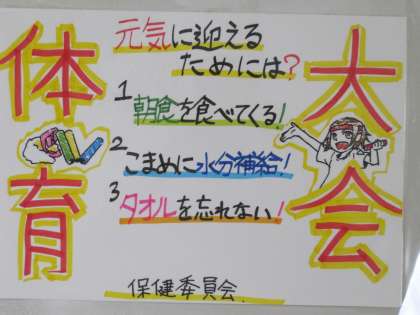 体育
大会
元気に迎える
ためには?
1 朝食を食べてくる!
2 こまめに水分補給!
3 タオルを忘れない!
保健委員会